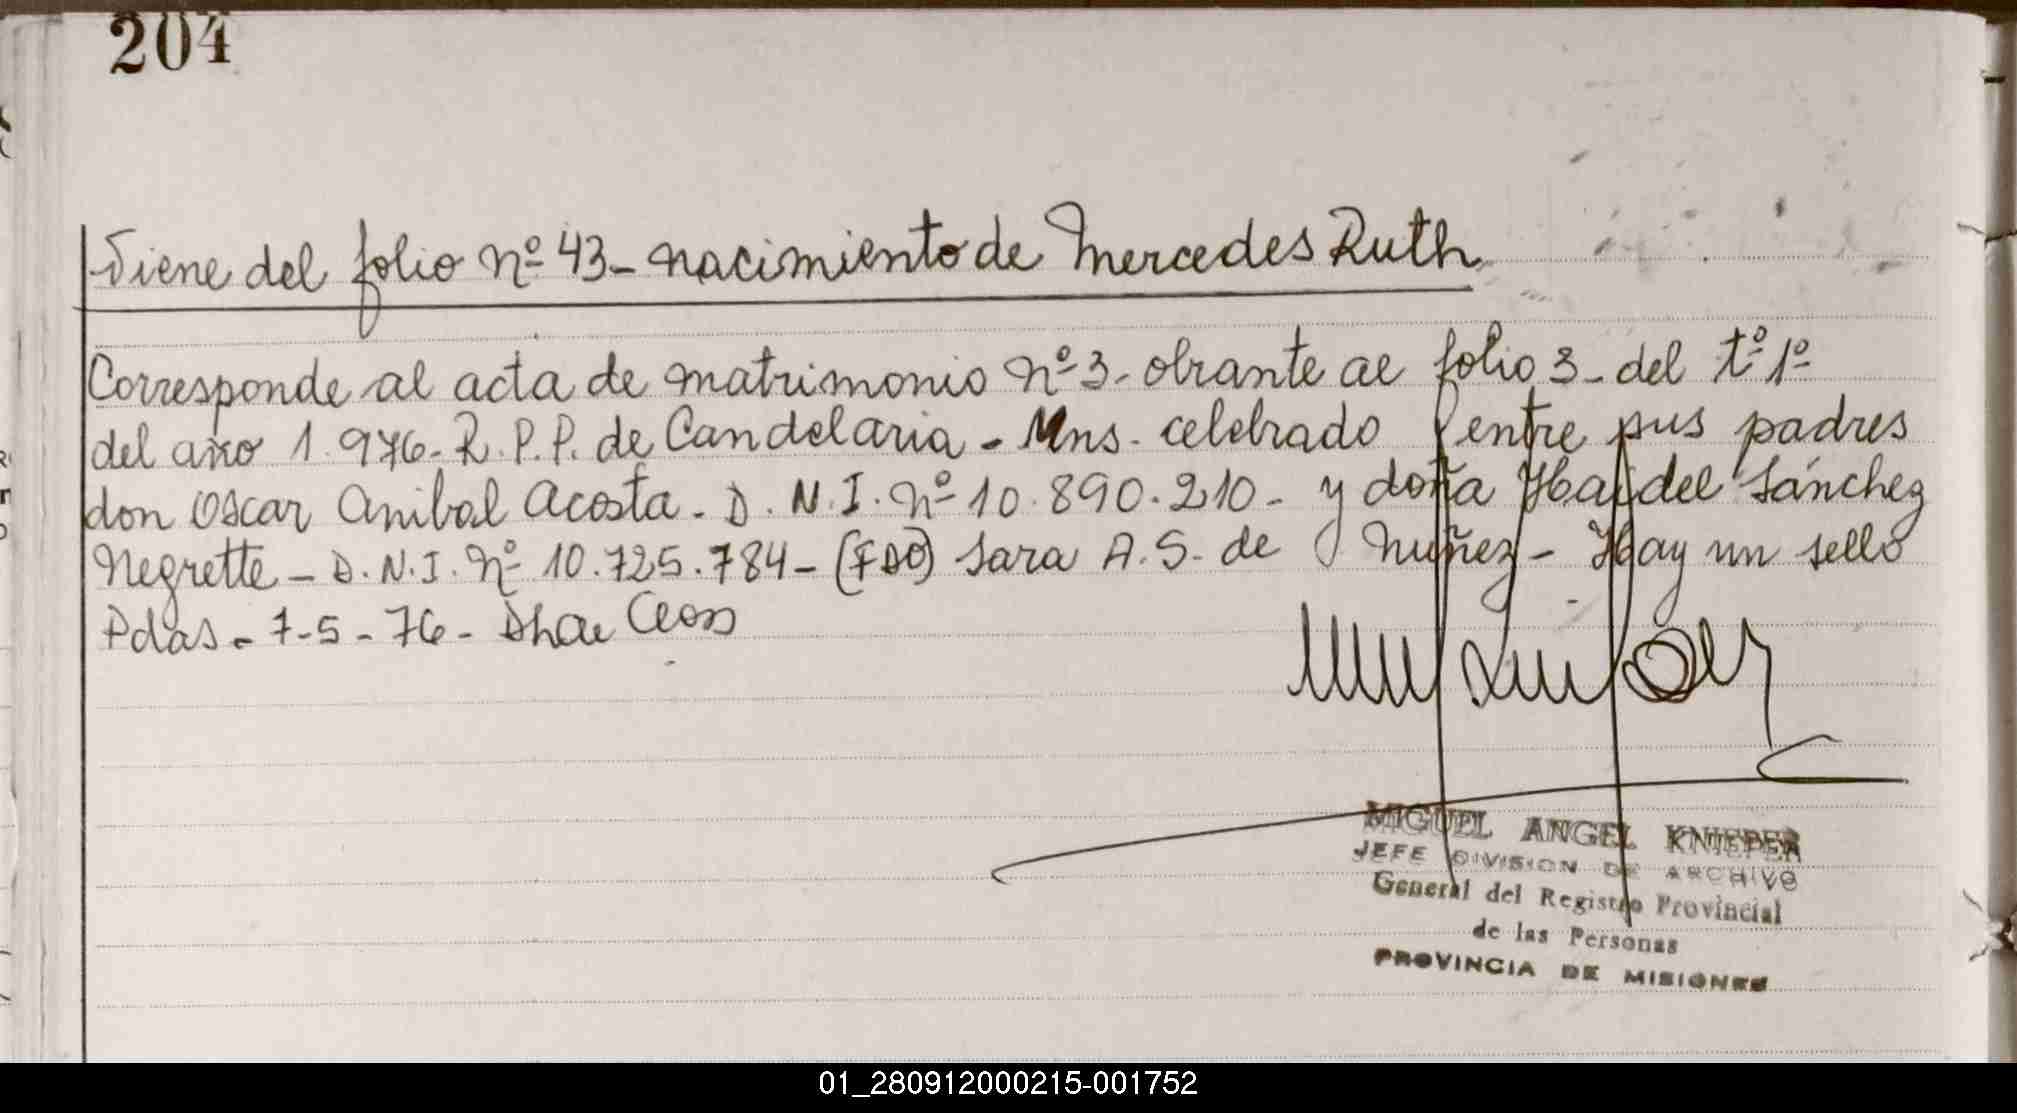 204
Viene del folio nº 43_ nacimiento de Mercedes Ruth
Corresponde al acta de matrimonio nº 3_ obrante al folio 3_ del tº 1º
del año 1.976_ R.P.P. de Candelaria _ Mns. celebrado entre sus padres
don Oscar Anibal Acosta _ D.N.I. nº 10.890.210_ y doña Haidel Sánchez
Negrette _ D.N.I. nº 10.725.784 _ (FDO) Sara A.S. de Nuñez _ Hay un sello
Pdas _ 7-5-76_
MIGUEL ANGEL KNIEPER
JEFE DIVISION DE ARCHIVO
General del Registro Provincial
de las Personas
PROVINCIA DE MISIONES
01_280912000215-001752